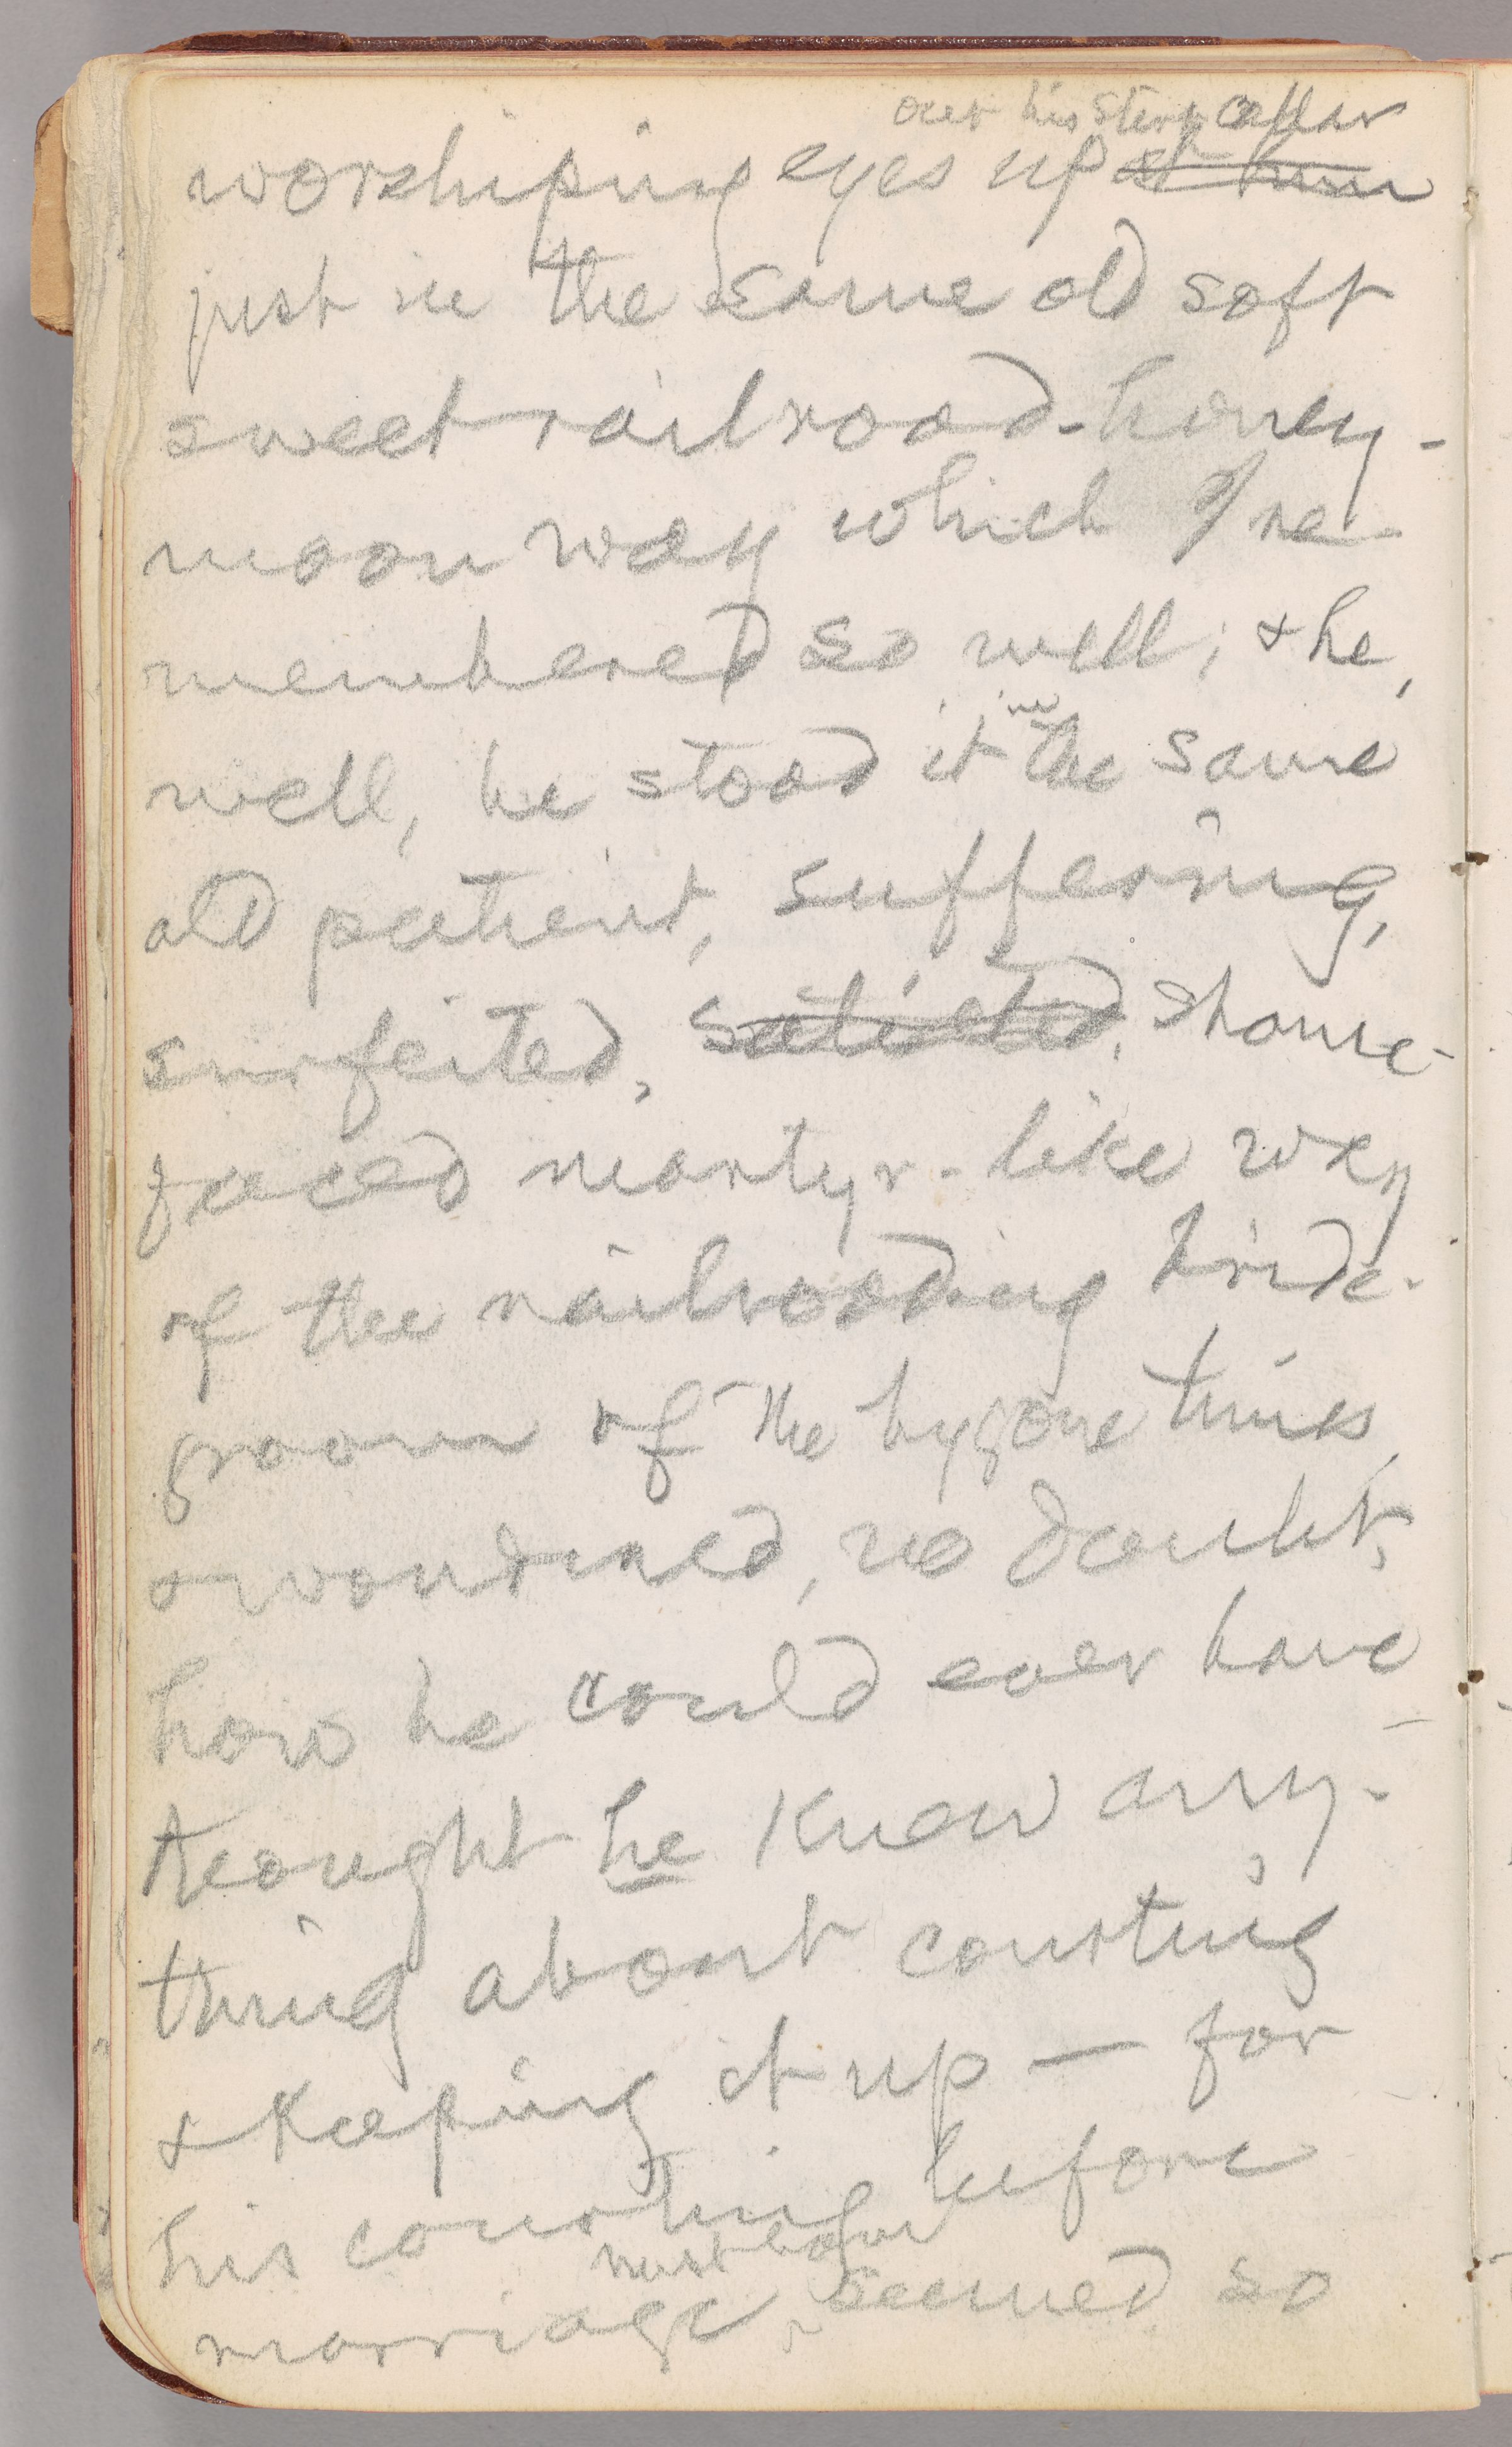 over his stern collar
worshiping eyes up ~~at him~~
just in the same old soft
sweet railroad-honey-
moon way which I re-
membered so well; & he,
well, he stood it in the same
old patient, suffering,
surfeited, ~~satiated,~~ shame-
faced martyr-like way
of the railroading bride-
groom of the bygone times,
& wondered, no doubt,
how he could ever have
thought he knew any-
thing about courting
& keeping it up — for
his courting before
marriage, must have seemed so